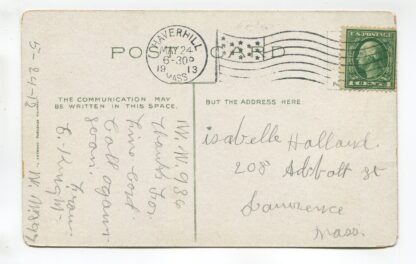 POST CARD
HAVERHILL
MAY 24
6-30P
1913
MASS.
U.S. POSTAGE
1 CENT 1
THE COMMUNICATION MAY
BE WRITTEN IN THIS SPACE.
BUT THE ADDRESS HERE.
5-24-13
Thanks for
Card
Call again
soon.
From
isabelle Holland
208 Abbott st
Lawrence
Mass.